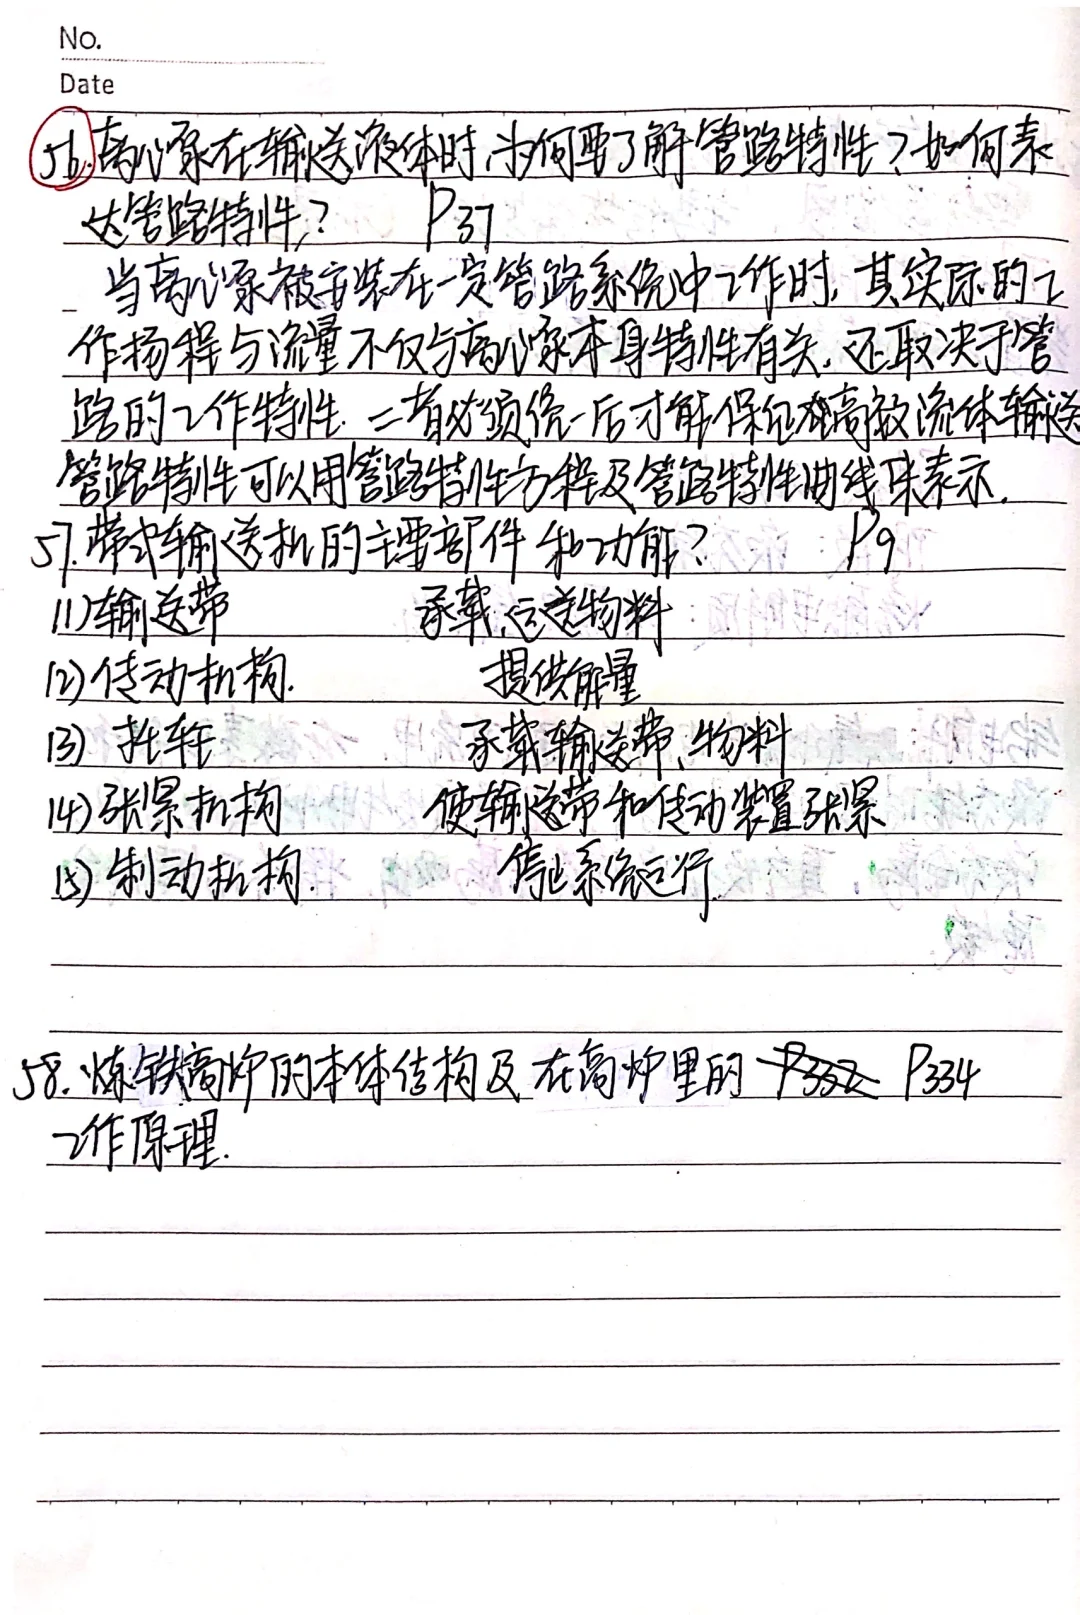 No.
Date
56.离心泵在输送液体时,为何要了解管路特性?如何表
达管路特性? P37
当离心泵被安装在一定管路系统中工作时,其实际的工
作扬程与流量不仅与离心泵本身特性有关,还取决于管
路的工作特性.二者必须统一后才能保证高效流体输送
管路特性可以用管路特性方程及管路特性曲线来表示.
57.带式输送机的主要部件和功能? P9
(1)输送带 承载、运送物料
(2)传动机构. 提供能量
(3)托辊 承载输送带、物料
(4)张紧机构 使输送带和传动装置张紧
(5)制动机构. 停止系统运行.
58.炼铁高炉的本体结构及在高炉里的 P332 P334
工作原理.